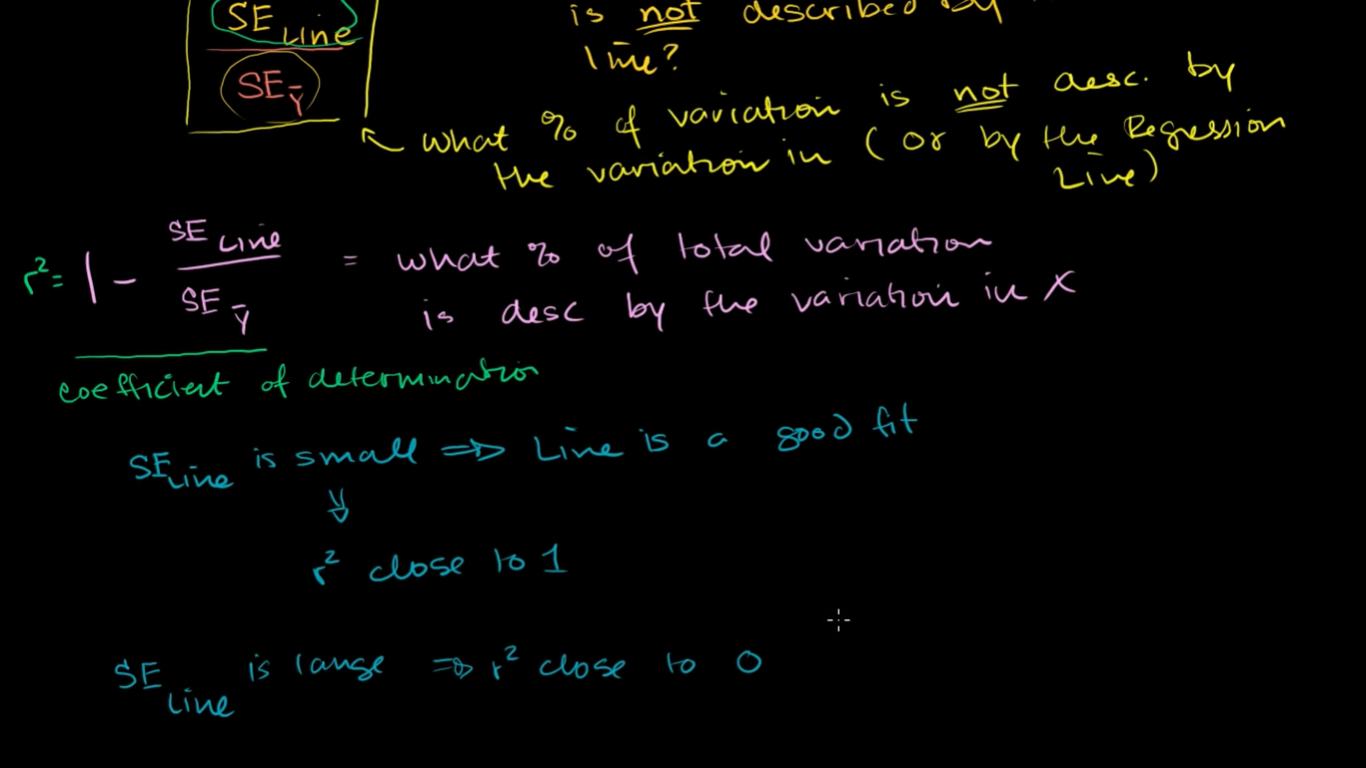 SE LINE
SE Ȳ
is not described by
line?
what % of variation is not desc. by
the variation in (or by the Regression
Line)
r² = 1 - SE Line / SE Ȳ = what % of total variation
is desc by the variation in X
coefficient of determination
SE Line is small ⇒ Line is a good fit
⇓
r² close to 1
SE Line is large ⇒ r² close to 0